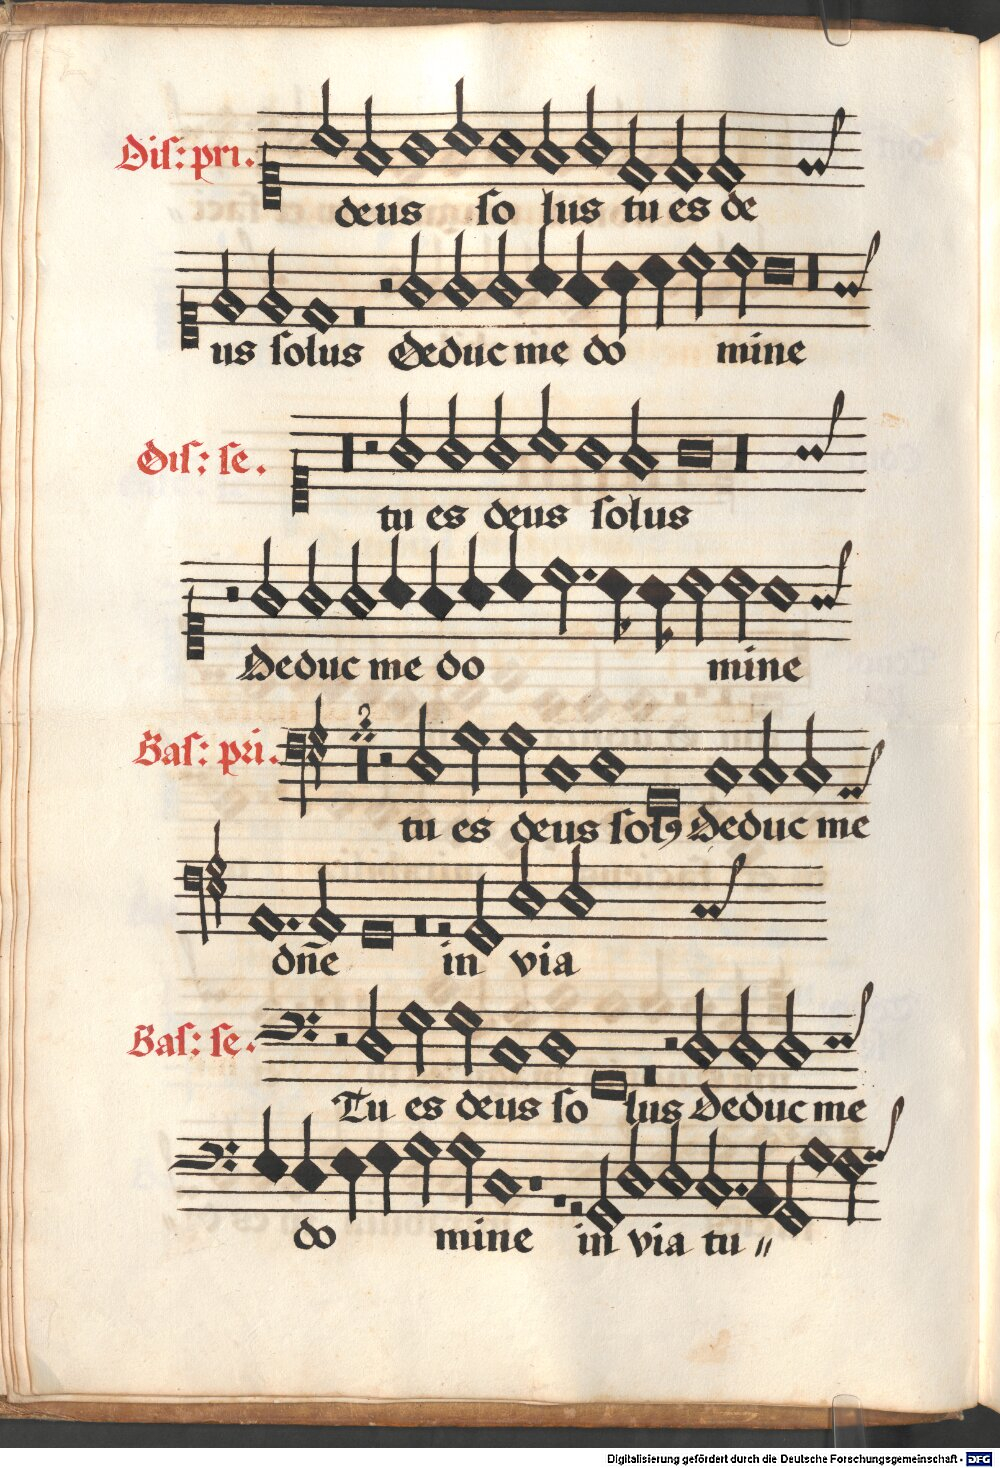 Dis: pri.
deus so lus tu es de
us solus Deduc me do mine
Dis: se.
tu es deus solus
Deduc me do mine
Bas: pri.
2
tu es deus solꝰ Deduc me
dn̄e in via
Bas: se.
Tu es deus so lus Deduc me
do mine in via tu //
Digitalisierung gefördert durch die Deutsche Forschungsgemeinschaft - DFG